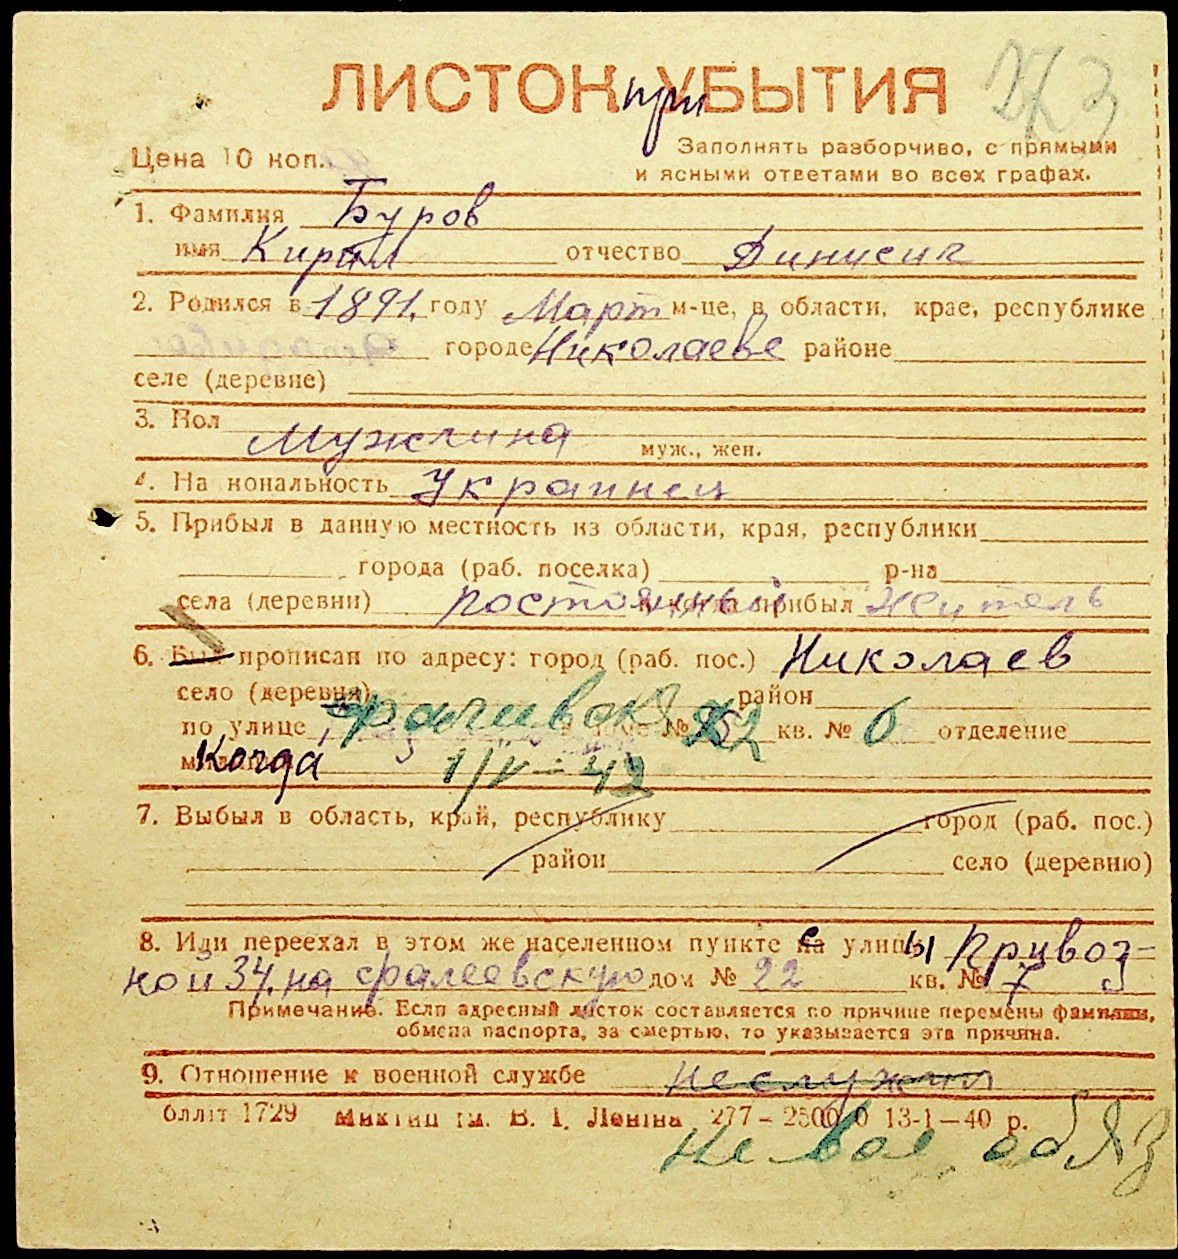 ЛИСТОК при УБЫТИЯ
Цена 10 коп.
Заполнять разборчиво, с прямыми
и ясными ответами во всех графах.
1. Фамилия Буров
имя Кирил отчество Динисич
2. Родился в 1891. году Март м-це, в области, крае, республике
городе Николаеве районе
селе (деревне)
3. Пол Мужчина муж., жен.
4. На иональность Украинец
5. Прибыл в данную местность из области, края, республики
города (раб. поселка) р-на
села (деревни) постоянный и когда прибыл житель
6. Был прописан по адресу: город (раб. пос.) Николаев
село (деревня) район
по улице Фалиевская № 22 кв. № 6 отделение
Когда 1/V - 42
7. Выбыл в область, край, республику город (раб. пос.)
район село (деревню)
8. Или переехал в этом же населенном пункте с улицы Привоз=
ной 34. на Фалеевскую дом № 22 кв. № 7
Примечание. Если адресный листок составляется по причине перемены фамилии,
обмена паспорта, за смертью, то указывается эта причина.
9. Отношение к военной службе не служил
блліт 1729 Миктип ім. В. І. Леніна 277–25000 13-1—40 р.
не вое обяз